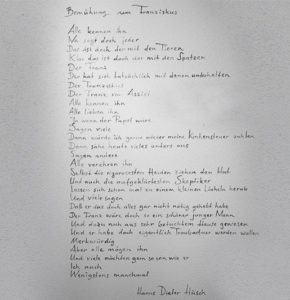 Bemühung um Franziskus
Alle kennen ihn
Na sagt doch jeder
Das ist doch der mit den Tieren
Klar das ist doch der mit den Spatzen
Der Franz
Der hat sich tatsächlich mit denen unterhalten
Der Franziskus
Der Franz von Assisi
Alle kennen ihn
Alle lieben ihn
Ja wenn der Papst wäre
Sagen viele
Dann würde ich gerne wieder meine Kirchensteuer zahlen
Dann sähe heute vieles anders aus
Sagen andere
Alle verehren ihn
Selbst die rigorosesten Heiden ziehen den Hut
Und auch die aufgeklärtesten Skeptiker
Lassen sich schon mal zu einem kleinen Lächeln herab
Und viele sagen
Daß er das doch alles gar nicht nötig gehabt habe
Der Franz wäre doch so ein schöner junger Mann
Und dazu noch aus sehr betuchtem Hause gewesen
Und er habe doch eigentlich Troubadour werden wollen
Merkwürdig
Aber alle mögen ihn
Und viele möchten gern so sein wie er
Ich auch
Wenigstens manchmal
Hanns Dieter Hüsch